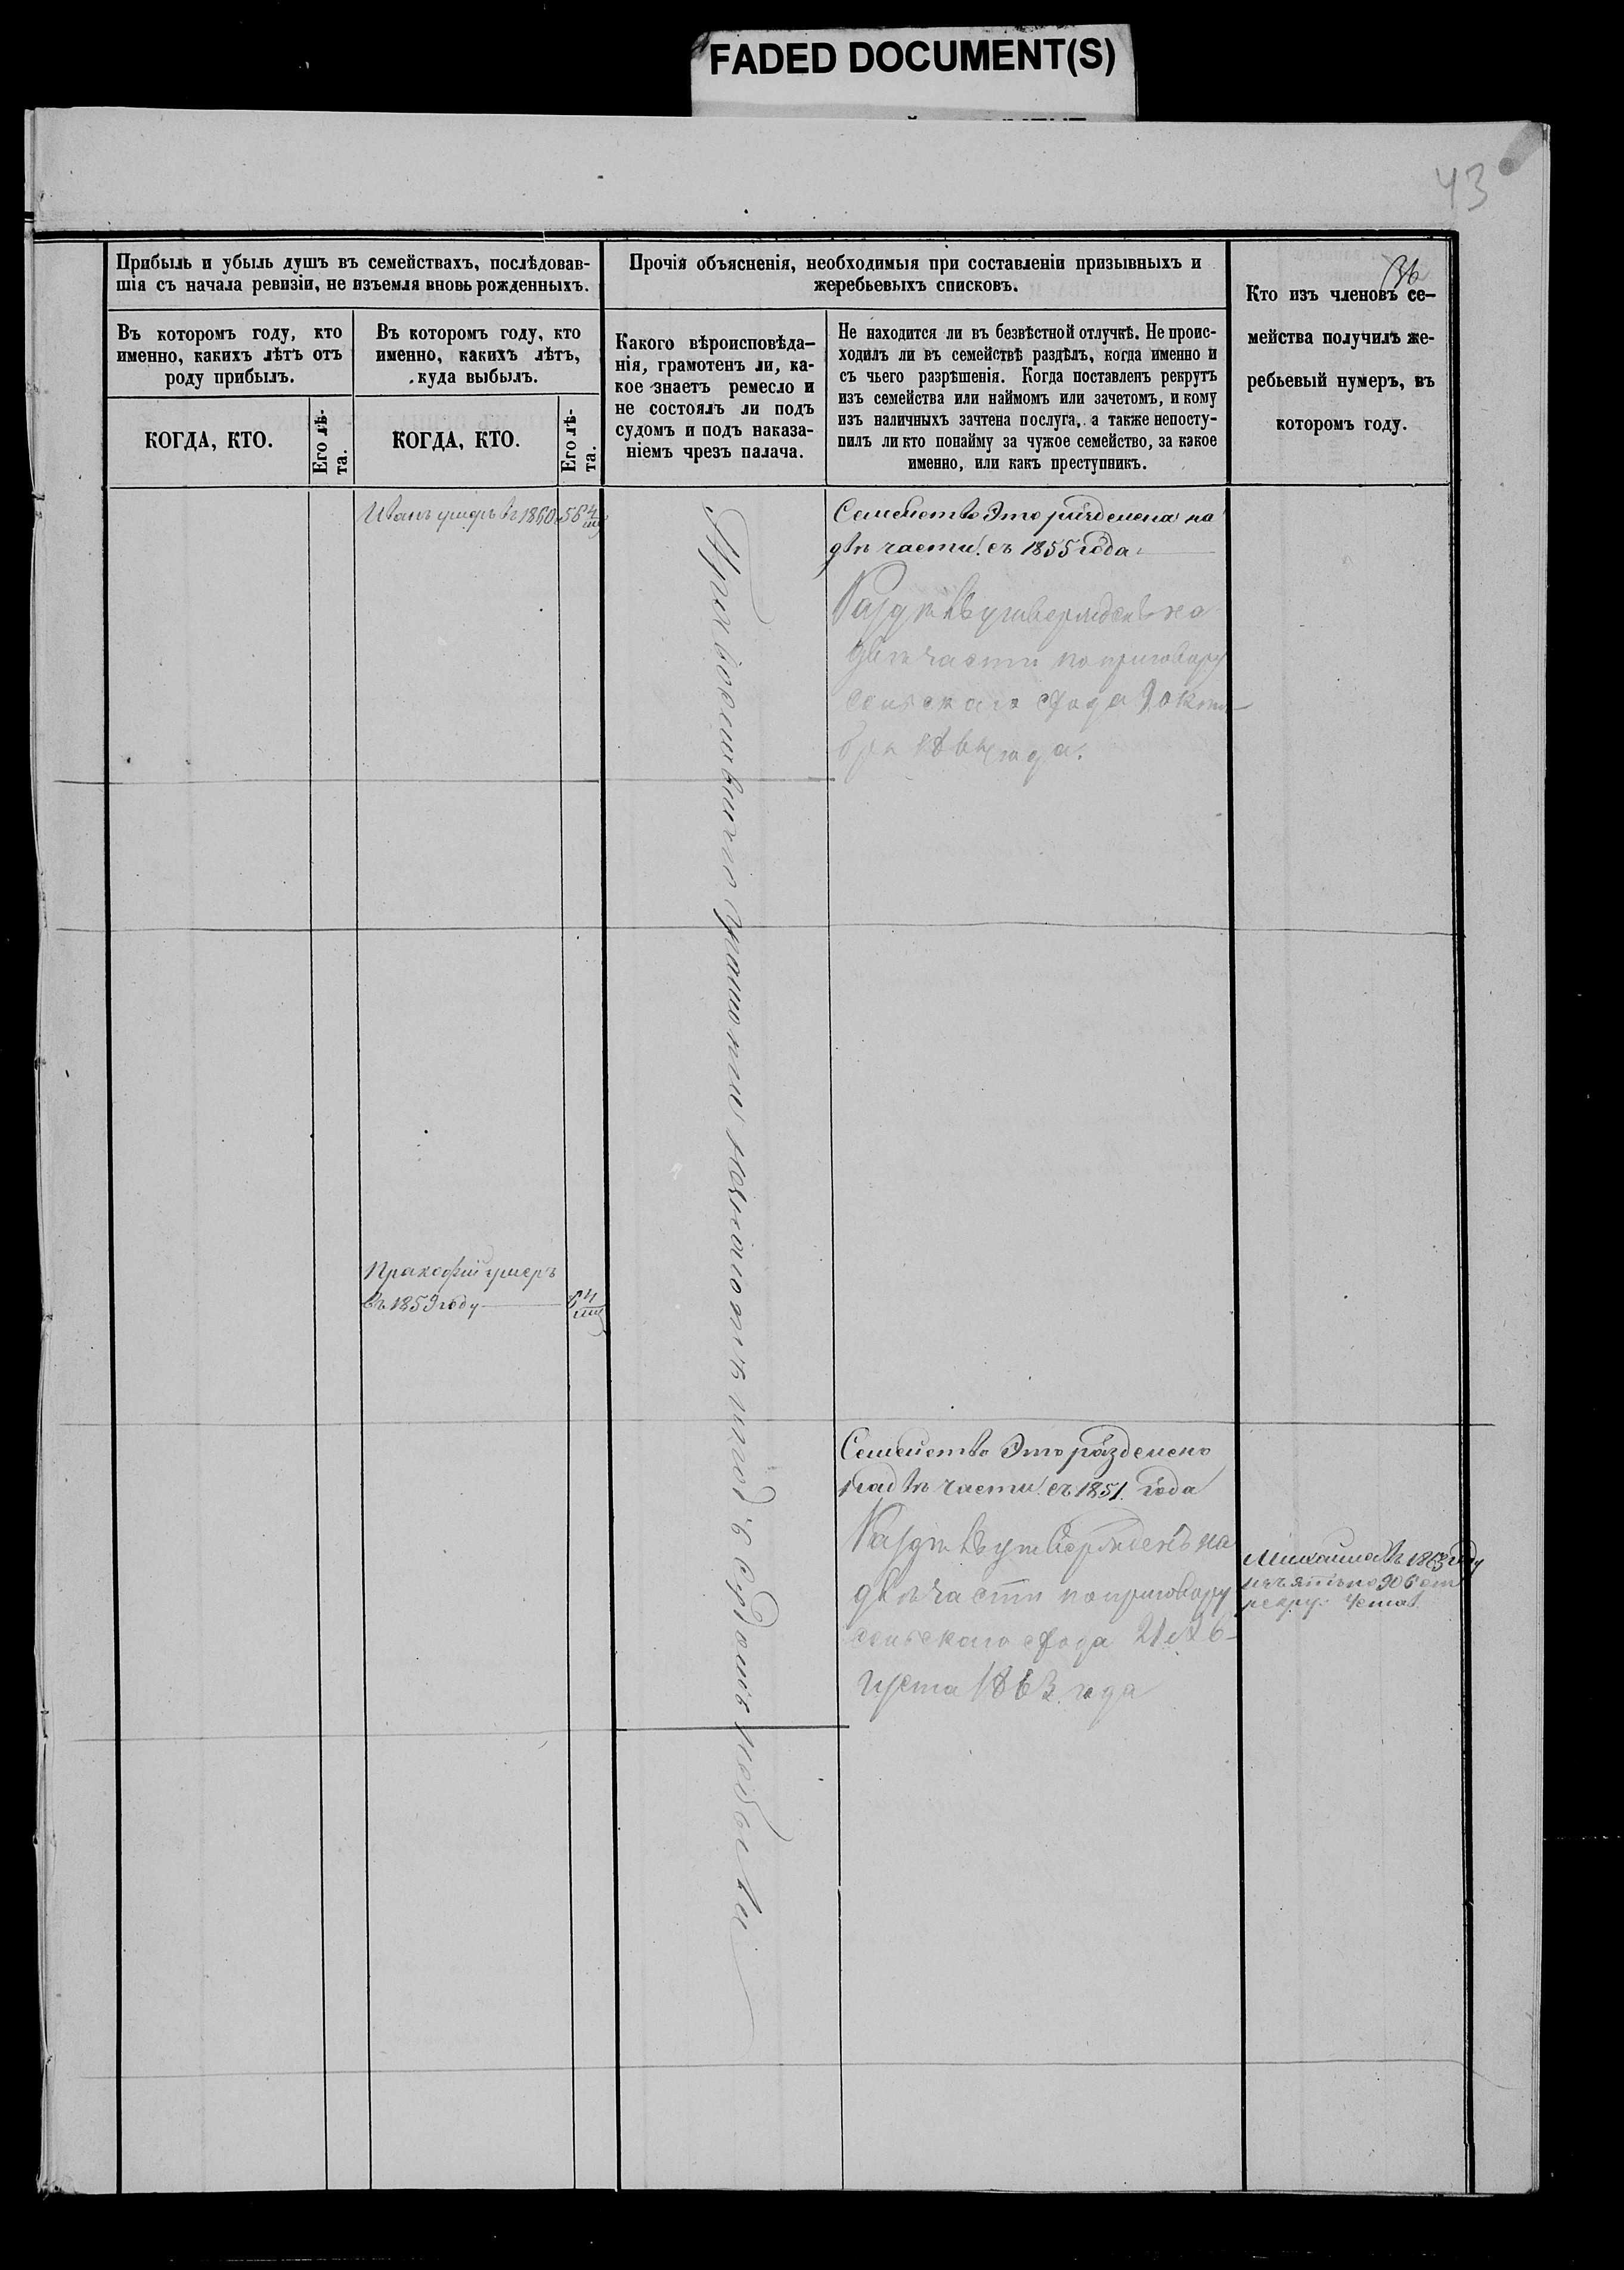 FADED DOCUMENT(S)
43
36
Прибыль и убыль душъ въ семействахъ, послѣдовав-
шія съ начала ревизіи, не изъемля вновь рожденныхъ.
Въ которомъ году, кто
именно, какихъ лѣтъ отъ
роду прибылъ.
КОГДА, КТО.
Его лѣ-
та.
Въ которомъ году, кто
именно, какихъ лѣтъ,
куда выбылъ.
КОГДА, КТО.
Его лѣ-
та.
Прочія объясненія, необходимыя при составленіи призывныхъ и
жеребьевыхъ списковъ.
Какого вѣроисповѣда-
нія, грамотенъ ли, ка-
кое знаетъ ремесло и
не состоялъ ли подъ
судомъ и подъ наказа-
ніемъ чрезъ палача.
Не находится ли въ безвѣстной отлучкѣ. Не проис-
ходилъ ли въ семействѣ раздѣлъ, когда именно и
съ чьего разрѣшенія. Когда поставленъ рекрутъ
изъ семейства или наймомъ или зачетомъ, и кому
изъ наличныхъ зачтена послуга, а также непосту-
пилъ ли кто понайму за чужое семейство, за какое
именно, или какъ преступникъ.
Кто изъ членовъ се-
мейства получилъ же-
ребьевый нумеръ, въ
которомъ году.
Иванъ умеръ въ 1860
Семейство Это разделена на
двѣ части съ 1855 года
Раздѣлъ утвержденъ на
двѣ части по приговору
сельскаго схода 9 октя-
бря 1864 года.
Пракофій умеръ
въ 1859 году
Семейство Это разделено
на двѣ части съ 1851 года
Раздѣлъ утвержденъ на
двѣ части по приговору
сельскаго схода 21 Ав-
густа 1863 года
Михаила въ 1863 году